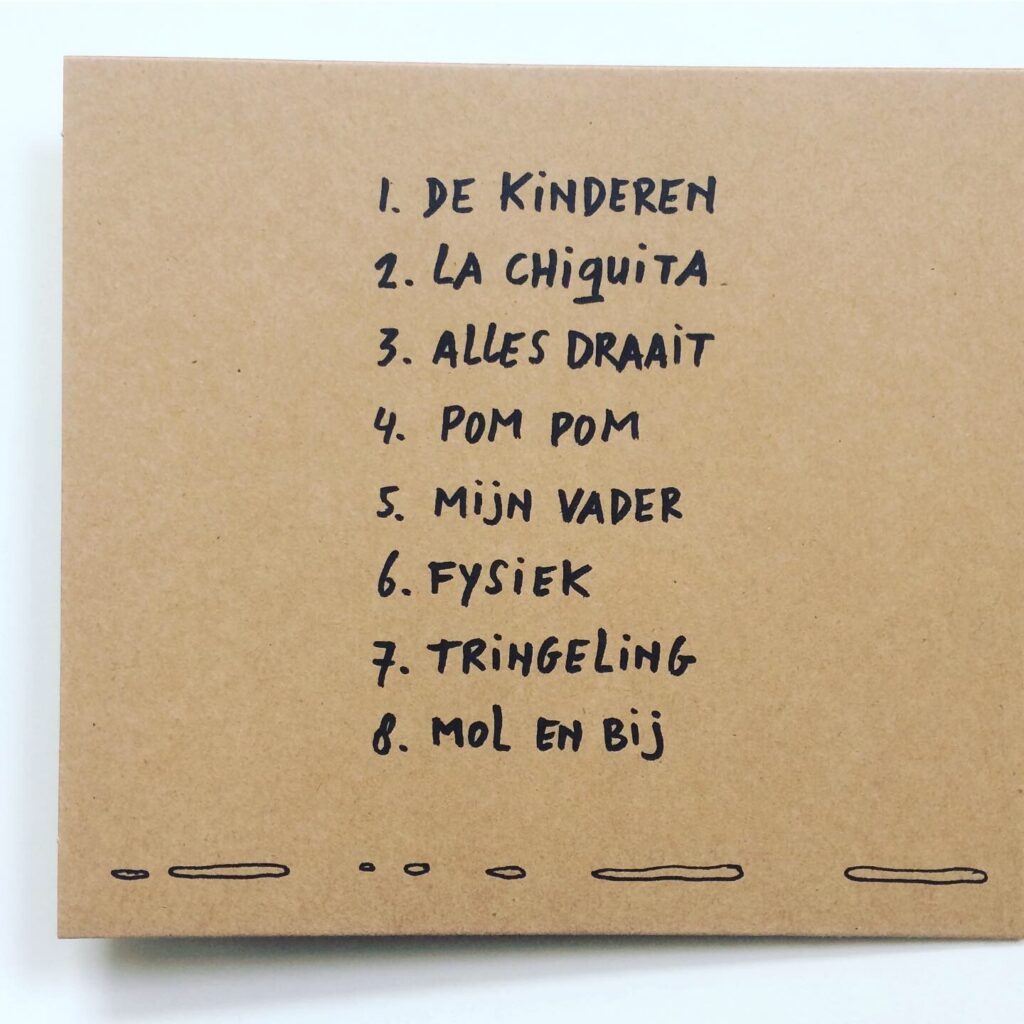 1. DE KiNDEREN
2. LA CHiquiTA
3. ALLES DRAAiT
4. POM POM
5. MijN VADER
6. FYSiEK
7. TRiNGELiNG
8. MOL EN Bij